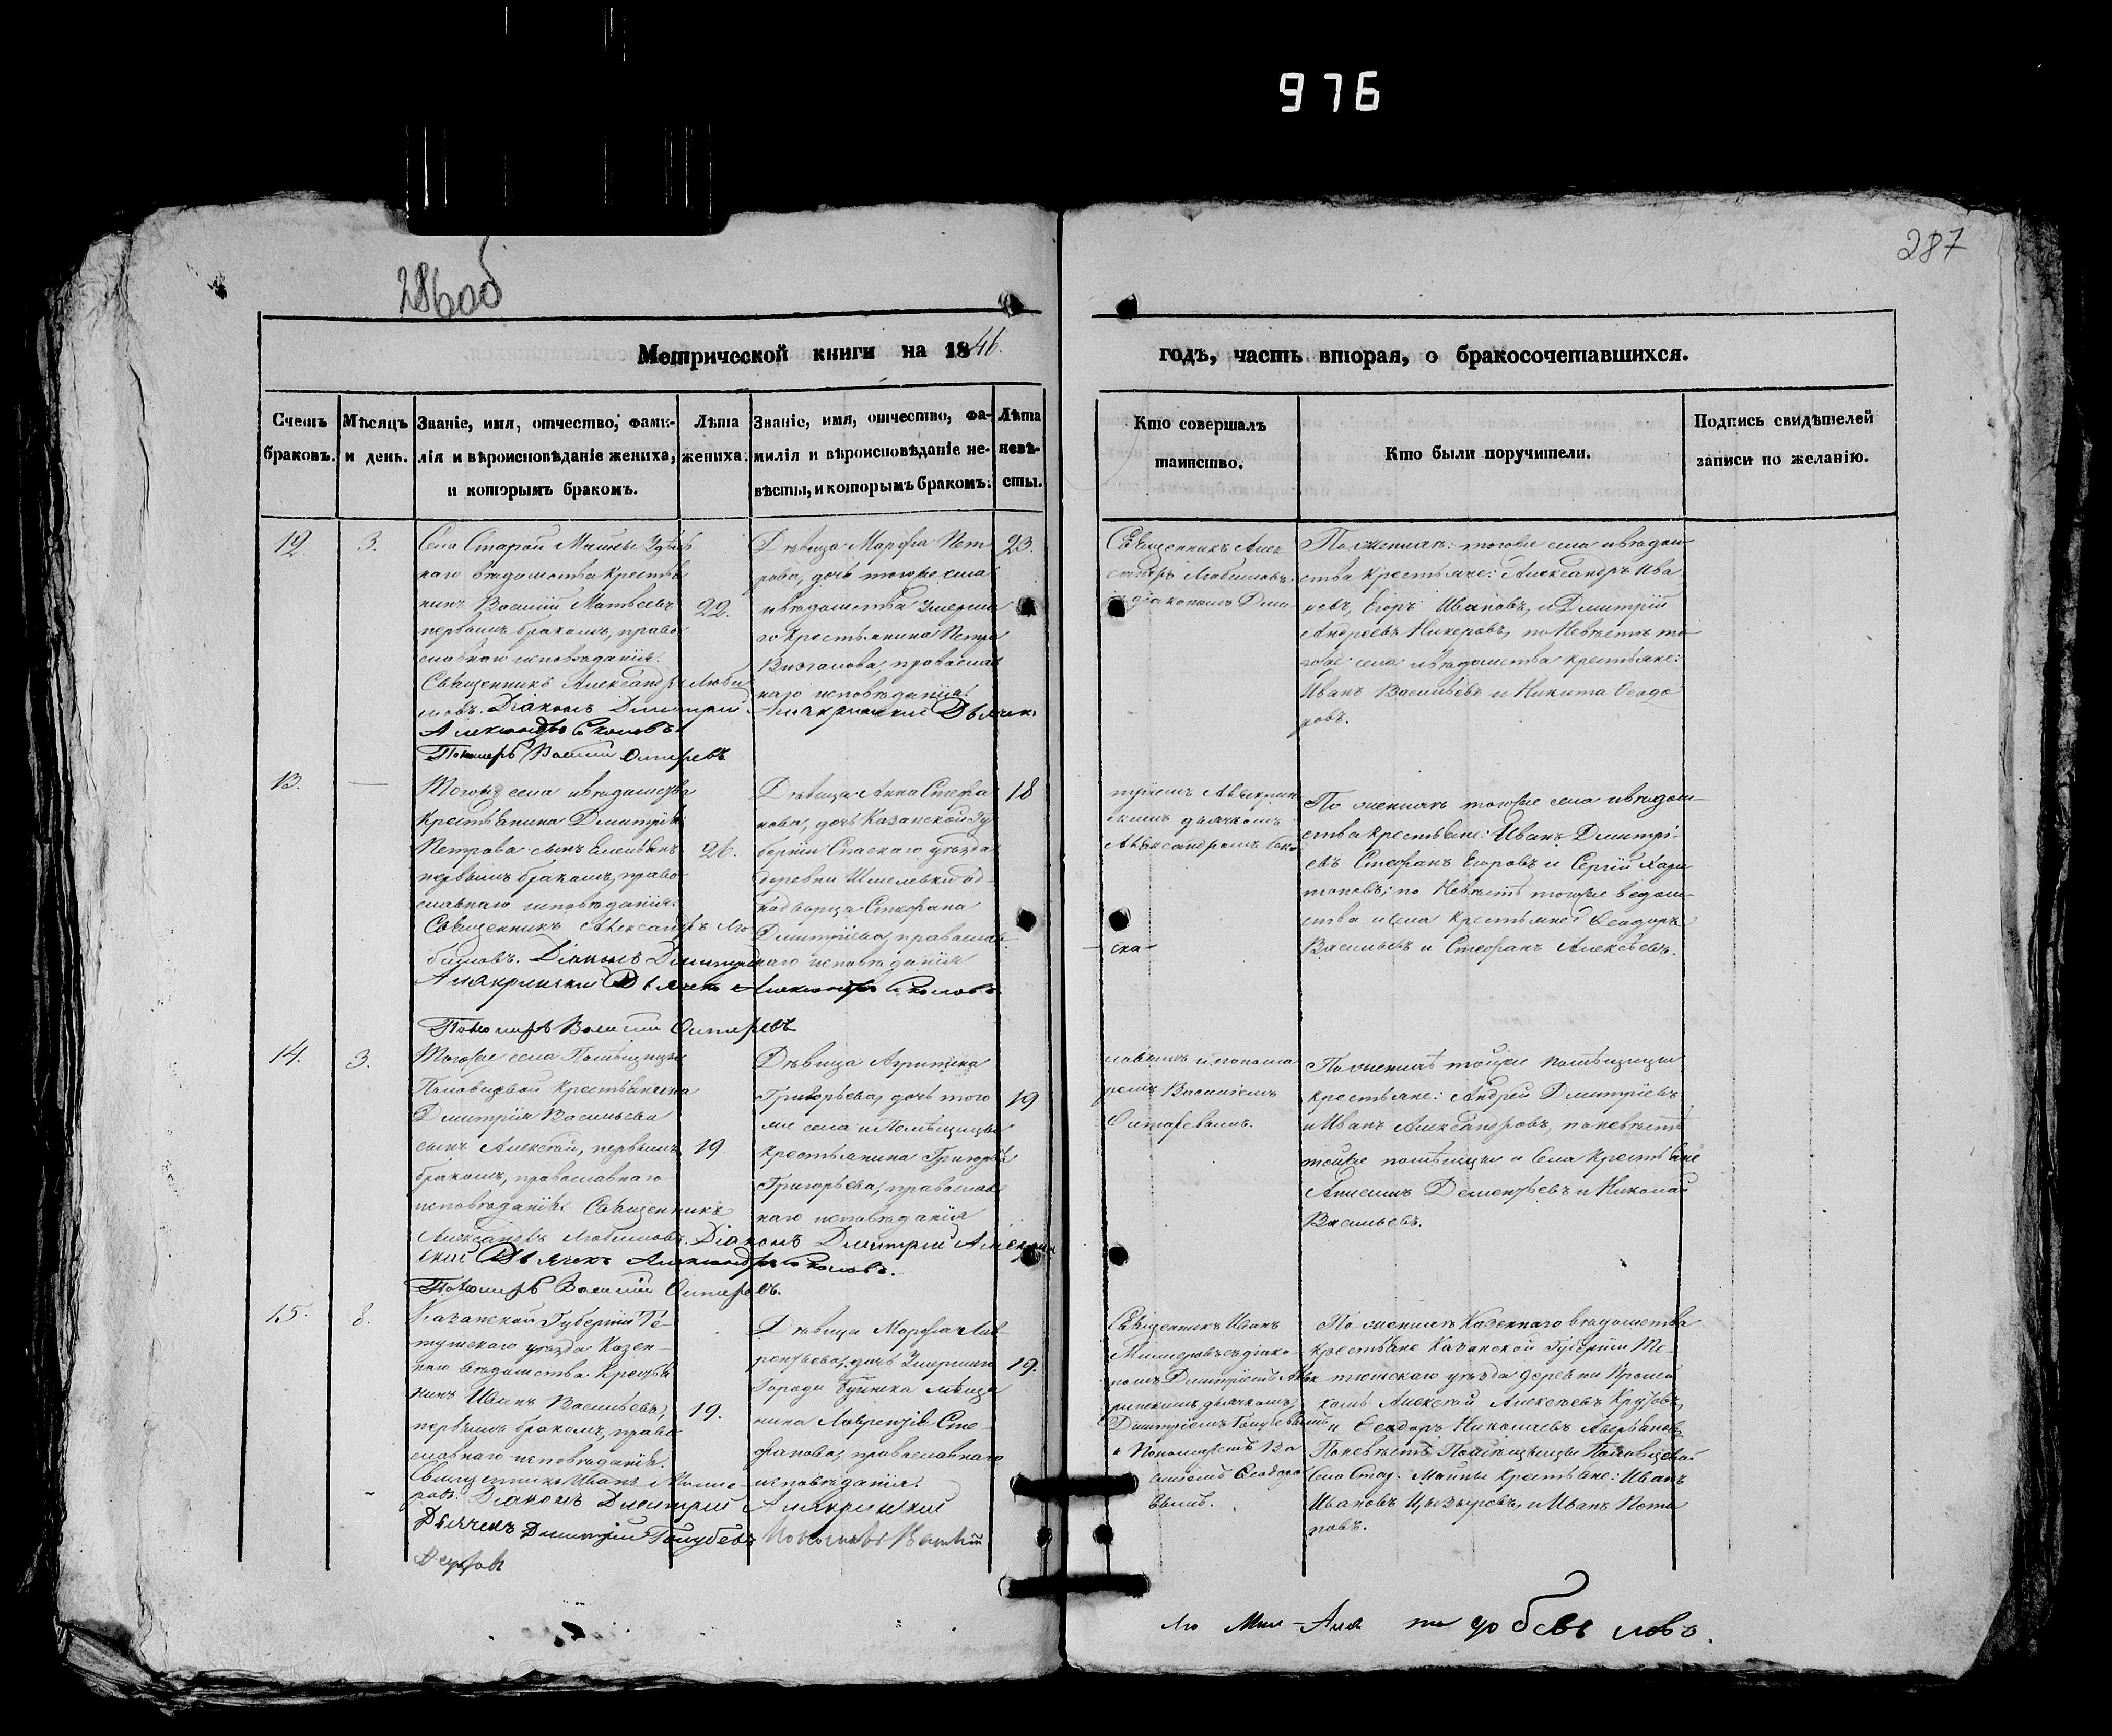 976
286об
287
Метрической книги на 1846.
годъ, часть вторая, о бракосочетавшихся.
Счетъ браковъ.
Мѣсяцъ и день.
Званіе, имя, отчество, фами-
лія и вѣроисповѣданіе жениха,
и которымъ бракомъ.
Лѣта
жениха.
Званіе, имя, отчество, фа-
милія и вѣроисповѣданіе не-
вѣсты, и которымъ бракомъ.
Лѣта
невѣ-
сты.
Кто совершалъ
таинство.
Кто были поручители.
Подпись свидѣтелей
записи по желанію.
12
3.
Села Старой Майны Удѣль
наго вѣдомства крестья
нинъ Василій Матвѣевъ
первымъ бракомъ, право
славнаго исповѣданія.
Священникъ Александръ Люби
мовъ. Діаконъ Димитрій
Александръ Соколовъ
Пономарь Василій
22.
Дѣвица Марфа Пет
рова, дочь тогоже села
и вѣдомства умерша
го крестьянина Петра
православ
наго исповѣданія.
Дьячекъ
23.
Священникъ Алек
сандръ Любимовъ
съ діакономъ Дми
По женихѣ: тогоже села и вѣдом
ства крестьяне: Александръ Ива
новъ, Егоръ Ивановъ, и Дмитрій
Андреевъ по Невѣстѣ то
гоже села и вѣдомства крестьяне:
Иванъ Васильевъ и Никита Ѳеодо
ровъ.
13.
—
Тогожъ села и вѣдомства
крестьянина Дмитрія
Петрова сынъ Емельянъ
первымъ бракомъ, право
славнаго исповѣданія.
Священникъ Александръ Лю
бимовъ. Діаконъ Димитрій
Дьячекъ Александръ Соколовъ
Пономарь Василій
26.
Дѣвица Анна Стефа
нова, дочь Казанской гу
берніи Спаскаго уѣзда
деревни од-
нодворца Стефана
Дмитріева, православ
наго исповѣданія
18
тріемъ
скимъ дьячкомъ
Александромъ Соко
-ска-
По женихѣ тогоже села и вѣдом-
ства крестьяне: Иванъ Дмитрі-
евъ Стефанъ Егоровъ и Сергій Хари
тоновъ; по Невѣстѣ тогоже вѣдом-
ства и села крестьяне: Ѳеодоръ
Васильевъ и Стефанъ Алексѣевъ.
14.
3.
Тогоже села Помѣщицы
крестьянина
Дмитрія Васильева
сынъ Алексѣй, первымъ
бракомъ, православнаго
исповѣданія. Священникъ
Александръ Любимовъ. Діаконъ Димитрій
скій Дьячекъ Александръ Соколовъ.
Пономарь Василій
19
Дѣвица
Григорьева, дочь того
же села и Помѣщицы
крестьянина Григорья
Григорьева, православ
наго исповѣданія
19
ловымъ и понома
ремъ Василіемъ
По женихѣ тойже помѣщицы
крестьяне: Андрей Дмитріевъ
и Иванъ Александровъ, по невѣстѣ
тойже помѣщицы и Села крестьяне
Дементьевъ и Николай
Васильевъ.
15.
8.
Казанской Губерніи Те-
тюшскаго уѣзда Казен-
наго вѣдомства Крестья
нинъ Иванъ Васильевъ,
первымъ бракомъ, право
славнаго исповѣданія.
Священникъ Иванъ Милле
ровъ. Діаконъ Димитрій
Дьячекъ Димитрій Голубевъ
19.
Дѣвица Марфа Лав
рентьева, дочь Умершаго
Города Буинска мѣща
нина Лаврентія Сте-
фанова, православнаго
исповѣданія.
19.
Священникъ Иванъ
Миллеровъ съ діако-
номъ Димитріемъ
дьячкомъ
Димитріемъ Голубевымъ
и Пономаремъ Ва
силіемъ Ѳеодоро
вымъ.
По женихѣ Казеннаго вѣдомства
крестьяне Казанской Губерніи Те-
тюшскаго уѣзда деревни
Алексѣй Алексѣевъ
и Ѳеодоръ Николаевъ
По невѣстѣ Помѣщицы
Села Стар. Майны крестьяне: Иванъ
Ивановъ и Иванъ Пота
повъ.